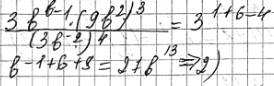 3b^{b-1}·(9b^2)^3 / (3b^{-2})^4 = 3^{1+6-4}
b^{-1+6+8} = 27b^{13} ⇒ 2)